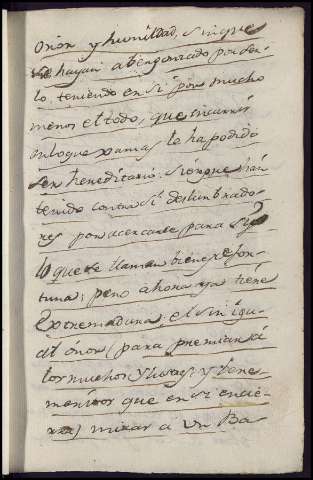 onor y humildad, sin que
se hayan abergonzado por ser-
lo, teniendo en si por mucho
menos el todo, que incurrir
en lo que jamas le ha podido
ser hereditario. Siempre han
tenido contra si deslumbrado-
res por acercarse para si
lo que se llaman bienes de for-
tuna; pero ahora ya tiene
Extremadura, el sin igu-
al onor (para premiar a
los muchos y bene-
meritos que en si encie-
rra) mirar a un Ba-